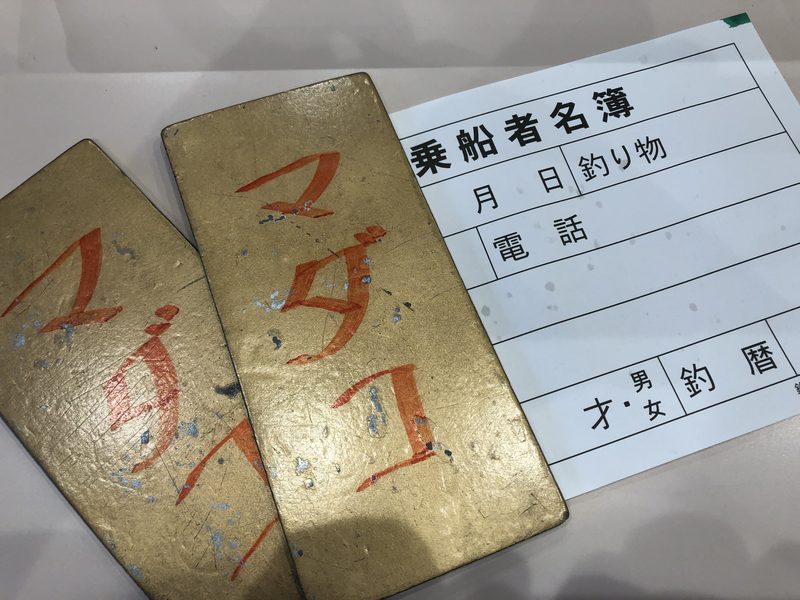 マダイ
マダコ
乗船者名簿
月 日 釣り物
電話
才・男女 釣暦